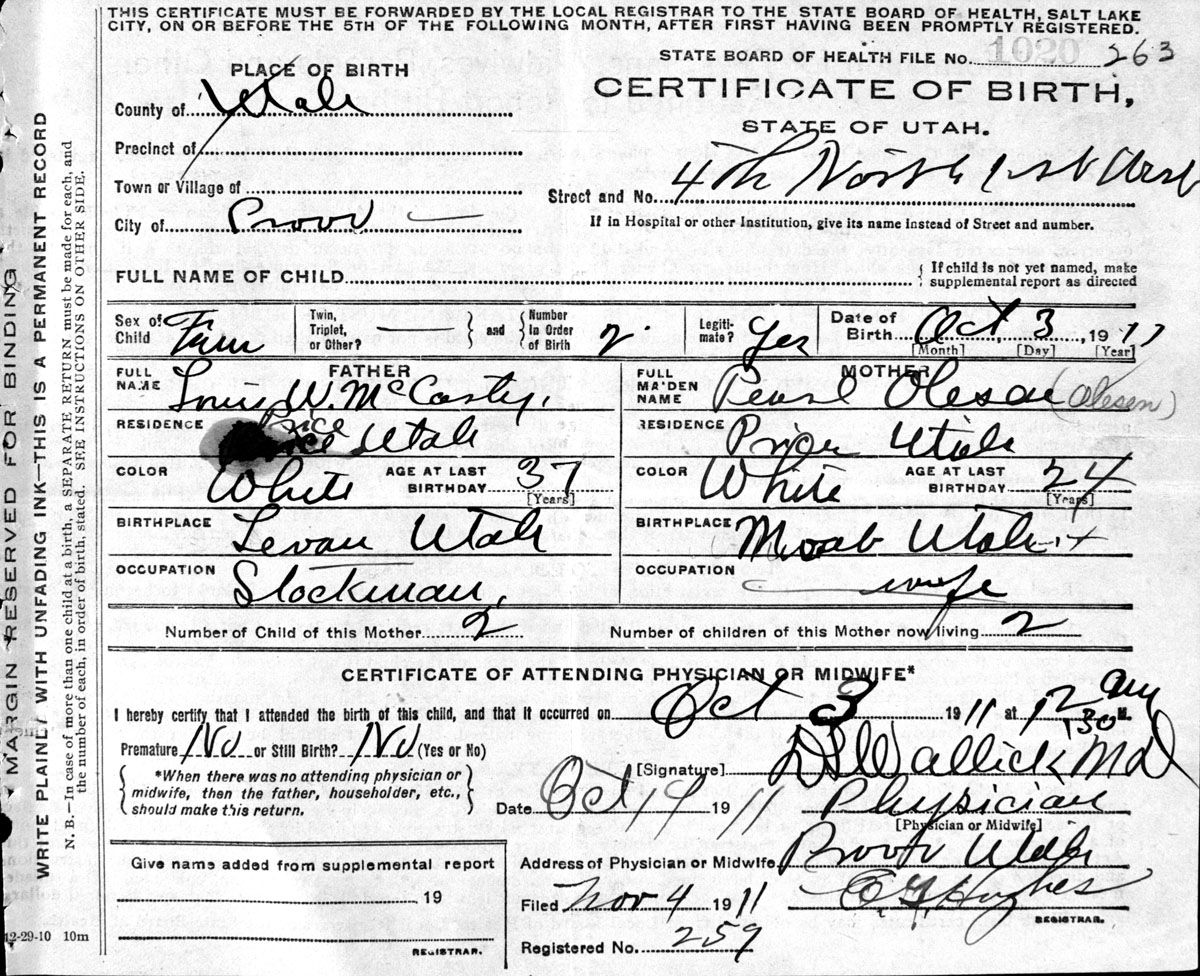 THIS CERTIFICATE MUST BE FORWARDED BY THE LOCAL REGISTRAR TO THE STATE BOARD OF HEALTH, SALT LAKE
CITY, ON OR BEFORE THE 5TH OF THE FOLLOWING MONTH, AFTER FIRST HAVING BEEN PROMPTLY REGISTERED.
STATE BOARD OF HEALTH FILE No. 1020 263
PLACE OF BIRTH
CERTIFICATE OF BIRTH,
STATE OF UTAH.
County of Utah
Precinct of
Town or Village of
Street and No. 4th North 1st West
City of Provo
If in Hospital or other Institution, give its name instead of Street and number.
FULL NAME OF CHILD
{ If child is not yet named, make supplemental report as directed
Sex of Child Fem
Twin, Triplet, or Other? } and { Number in Order of Birth 2
Legiti-mate? Yes
Date of Birth Oct. 3, 1911
[Month] [Day] [Year]
FATHER
FULL NAME Louis W. McCarty,
RESIDENCE Price Utah
COLOR White AGE AT LAST BIRTHDAY 37 [Years]
BIRTHPLACE Levan Utah
OCCUPATION Stockman,
MOTHER
FULL MAIDEN NAME Pearl Oleson (Olesen)
RESIDENCE Price Utah
COLOR White AGE AT LAST BIRTHDAY 24 [Years]
BIRTHPLACE Moab Utah
OCCUPATION wife
Number of Child of this Mother 2 Number of children of this Mother now living 2
CERTIFICATE OF ATTENDING PHYSICIAN OR MIDWIFE*
I hereby certify that I attended the birth of this child, and that it occurred on Oct 3 1911 at 12 30 am M.
Premature No or Still Birth? No (Yes or No)
[Signature] Wallick MD
{ *When there was no attending physician or midwife, then the father, householder, etc., should make this return. }
Date Oct 19 1911 Physician
[Physician or Midwife]
Give name added from supplemental report
19
REGISTRAR.
Address of Physician or Midwife Provo Utah
Filed Nov 4 1911 Hughes
REGISTRAR.
Registered No. 259
12-29-10 10m
MARGIN RESERVED FOR BINDING
WRITE PLAINLY WITH UNFADING INK—THIS IS A PERMANENT RECORD
N. B.—In case of more than one child at a birth, a SEPARATE RETURN must be made for each, and
the number of each, in order of birth, stated. SEE INSTRUCTIONS ON OTHER SIDE.